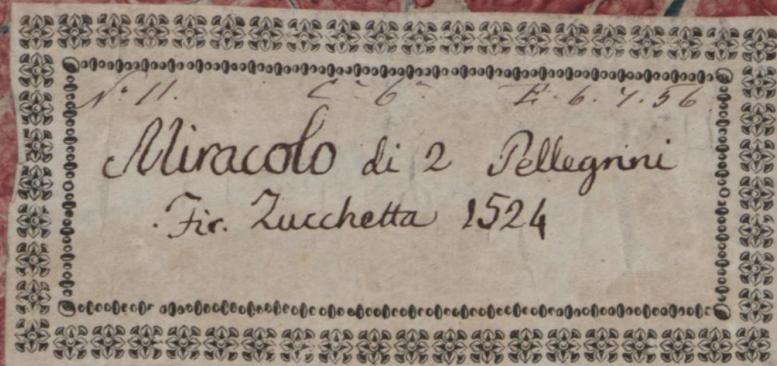 N.º 11. C.ª 6.ª E. 6. 7. 56
Miracolo di 2 Pellegrini
Fir. Zucchetta 1524